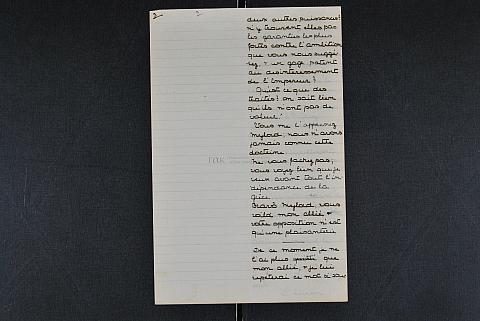 2
2
deux autres puissances?
n'y trouvent elles pas
les garanties les plus
fortes contre l'ambition
que vous nous suggé
rez, & un gage patent
du désintéressement
de l'Empereur?
Qu'est ce que des
traités! on sait bien
qu'ils n'ont pas de
valeur!
Vous me l'apprenez
Mylord, nous n'avons
jamais connu cette
doctrine.
Ne vous fachez pas,
vous voyez bien que je
veux avant tout l'in
dépendance de la
grèce.
Bravo Mylord, vous
voilà mon allié &
votre opposition n'est
qu'une plaisanterie
De ce moment je ne
l'ai plus quitté que
mon allié, & je lui
repeterai ce mot